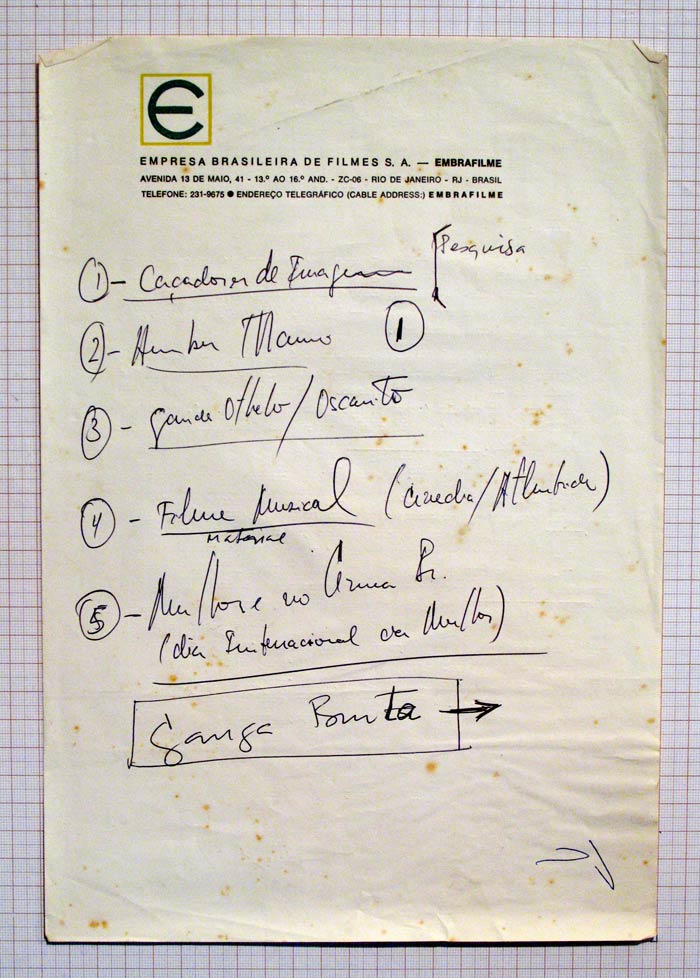 Є
EMPRESA BRASILEIRA DE FILMES S. A. — EMBRAFILME
AVENIDA 13 DE MAIO, 41 - 13.º AO 16.º AND. - ZC-06 - RIO DE JANEIRO - RJ - BRASIL
TELEFONE: 231-9675 ● ENDEREÇO TELEGRÁFICO (CABLE ADDRESS:) EMBRAFILME
① - Caçadores de Imagem [Pesquisa
② - Humber Mauro ①
③ - Grande Othelo / Oscarito
④ - Filme Musical (Cinédia / Atlântida)
material
⑤ - Mulher e no Cinema Br.
(dia Internacional da Mulher)
Ganga Bruta →